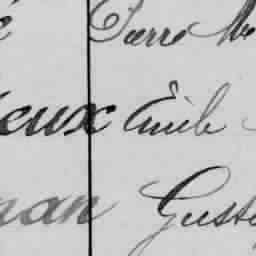 é Pierre
eux Emile
nan Gust